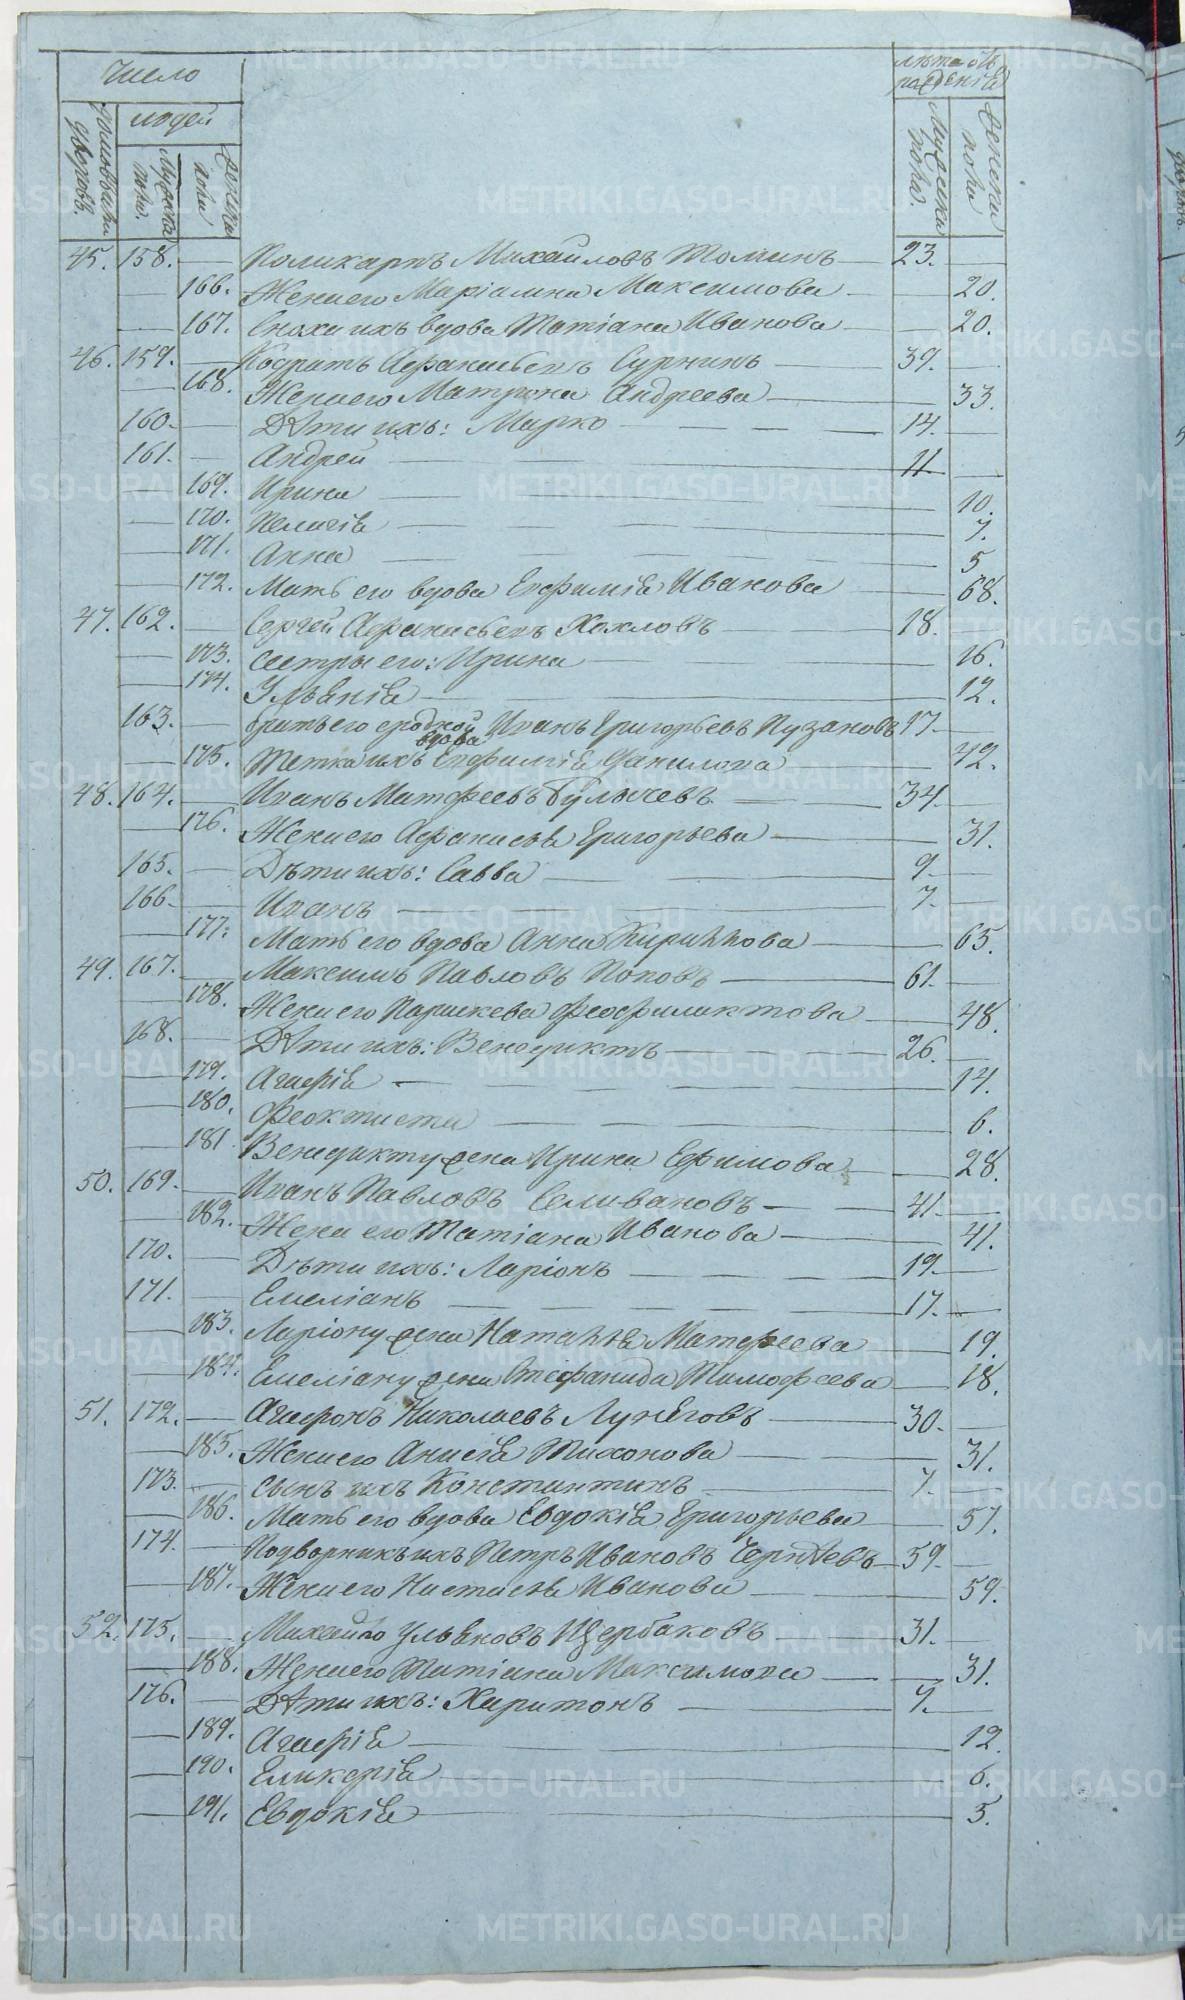 Число
лѣта отъ рожденія
домовъ или дворовъ.
людей
Мужеска пола.
Женска пола
Мужеска пола.
Женска пола
45. 158. — Поликарпъ Михайловъ Томинъ — 23. —
— 166. Жена его Маріамна Максимова — — 20.
— 167. Сноха ихъ вдова Татіана Иванова — — 20.
46. 159. — Кодратъ Афанасьевъ Сурнинъ — 39. —
— 168. Жена его Матрона Андреева — — 33.
160. — Дѣти ихъ: Марко — 14. —
161. — Андрей — 11 —
— 169. Ирина — — 10.
— 170. Пелагія — — 7.
— 171. Анна — — 5
— 172. Мать его вдова Евфимія Иванова — — 68.
47. 162. — Сергей Афанасьевъ Хохловъ — 18. —
— 173. Сестры его: Ирина — — 16.
— 174. Ульянія — — 12.
163. — братъ его сродной Иванъ Григорьевъ Пузановъ 17. —
вдова
— 175. Тетка ихъ Евфимія Данилова — — 42.
48. 164. — Иванъ Матфеевъ Булычевъ — 34. —
— 176. Жена его Афанасья Григорьева — — 31.
165. — Дѣти ихъ: Савва — 9. —
166. — Иванъ — 7. —
— 177. Мать его вдова Анна Кирилова — — 65.
49. 167. — Максимъ Павловъ Поповъ — 61. —
— 178. Жена его Параскева Феофилактова — — 48.
168. — Дѣти ихъ: Венедиктъ — 26. —
— 179. Агафія — — 14.
— 180. Феоктиста — — 6.
— 181 Венедикту жена Ирина Ефимова — — 28.
50. 169. — Иванъ Павловъ Селивановъ — 41. —
— 182. Жена его Татіана Иванова — — 41.
170. — Дѣти ихъ: Ларіонъ — 19. —
171. — Емеліанъ — 17. —
— 183. Ларіону жена Наталья Матфеева — — 19.
— 184. Емеліану жена Стефанида Тимофеева — — 18.
51. 172. — Агафонъ Николаевъ Лунеговъ — 30. —
— 185. Жена его Анисія Тихонова — — 31.
173. — Сынъ ихъ Константинъ — 7. —
— 186. Мать его вдова Евдокія Григорьева — — 57.
174. — Подворникъ ихъ Петръ Ивановъ — 59. —
— 187. Жена его Настасья Иванова — — 59.
52. 175. — Михайло Ульяновъ Щербаковъ — 31. —
— 188. Жена его Татіана Максимова — — 31.
176. — Дѣти ихъ: Харитонъ — 9. —
— 189. Агафія — — 12.
— 190. Гликерія — — 6.
— 191. Евдокія — — 5.
METRIKI.GASO-URAL.RU